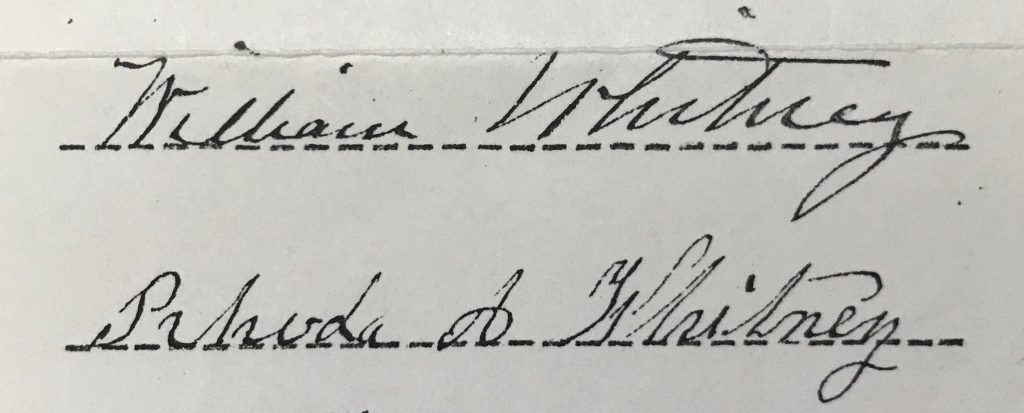 William Whitney
Rhoda A Whitney